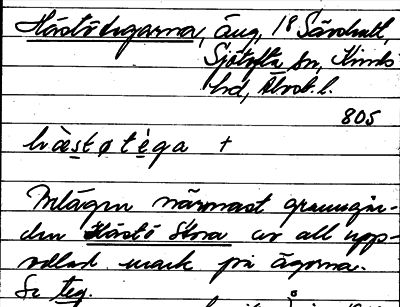 Hästö tegarna, äng, 18 Särshult,
Sjötofta sn, Kinds
hd, Älvsb. l.
805
hæstøtéga +
Inlägor närmast granngår-
den Hästö Stora av all upp-
odlad mark på ägorna.
Se teg.